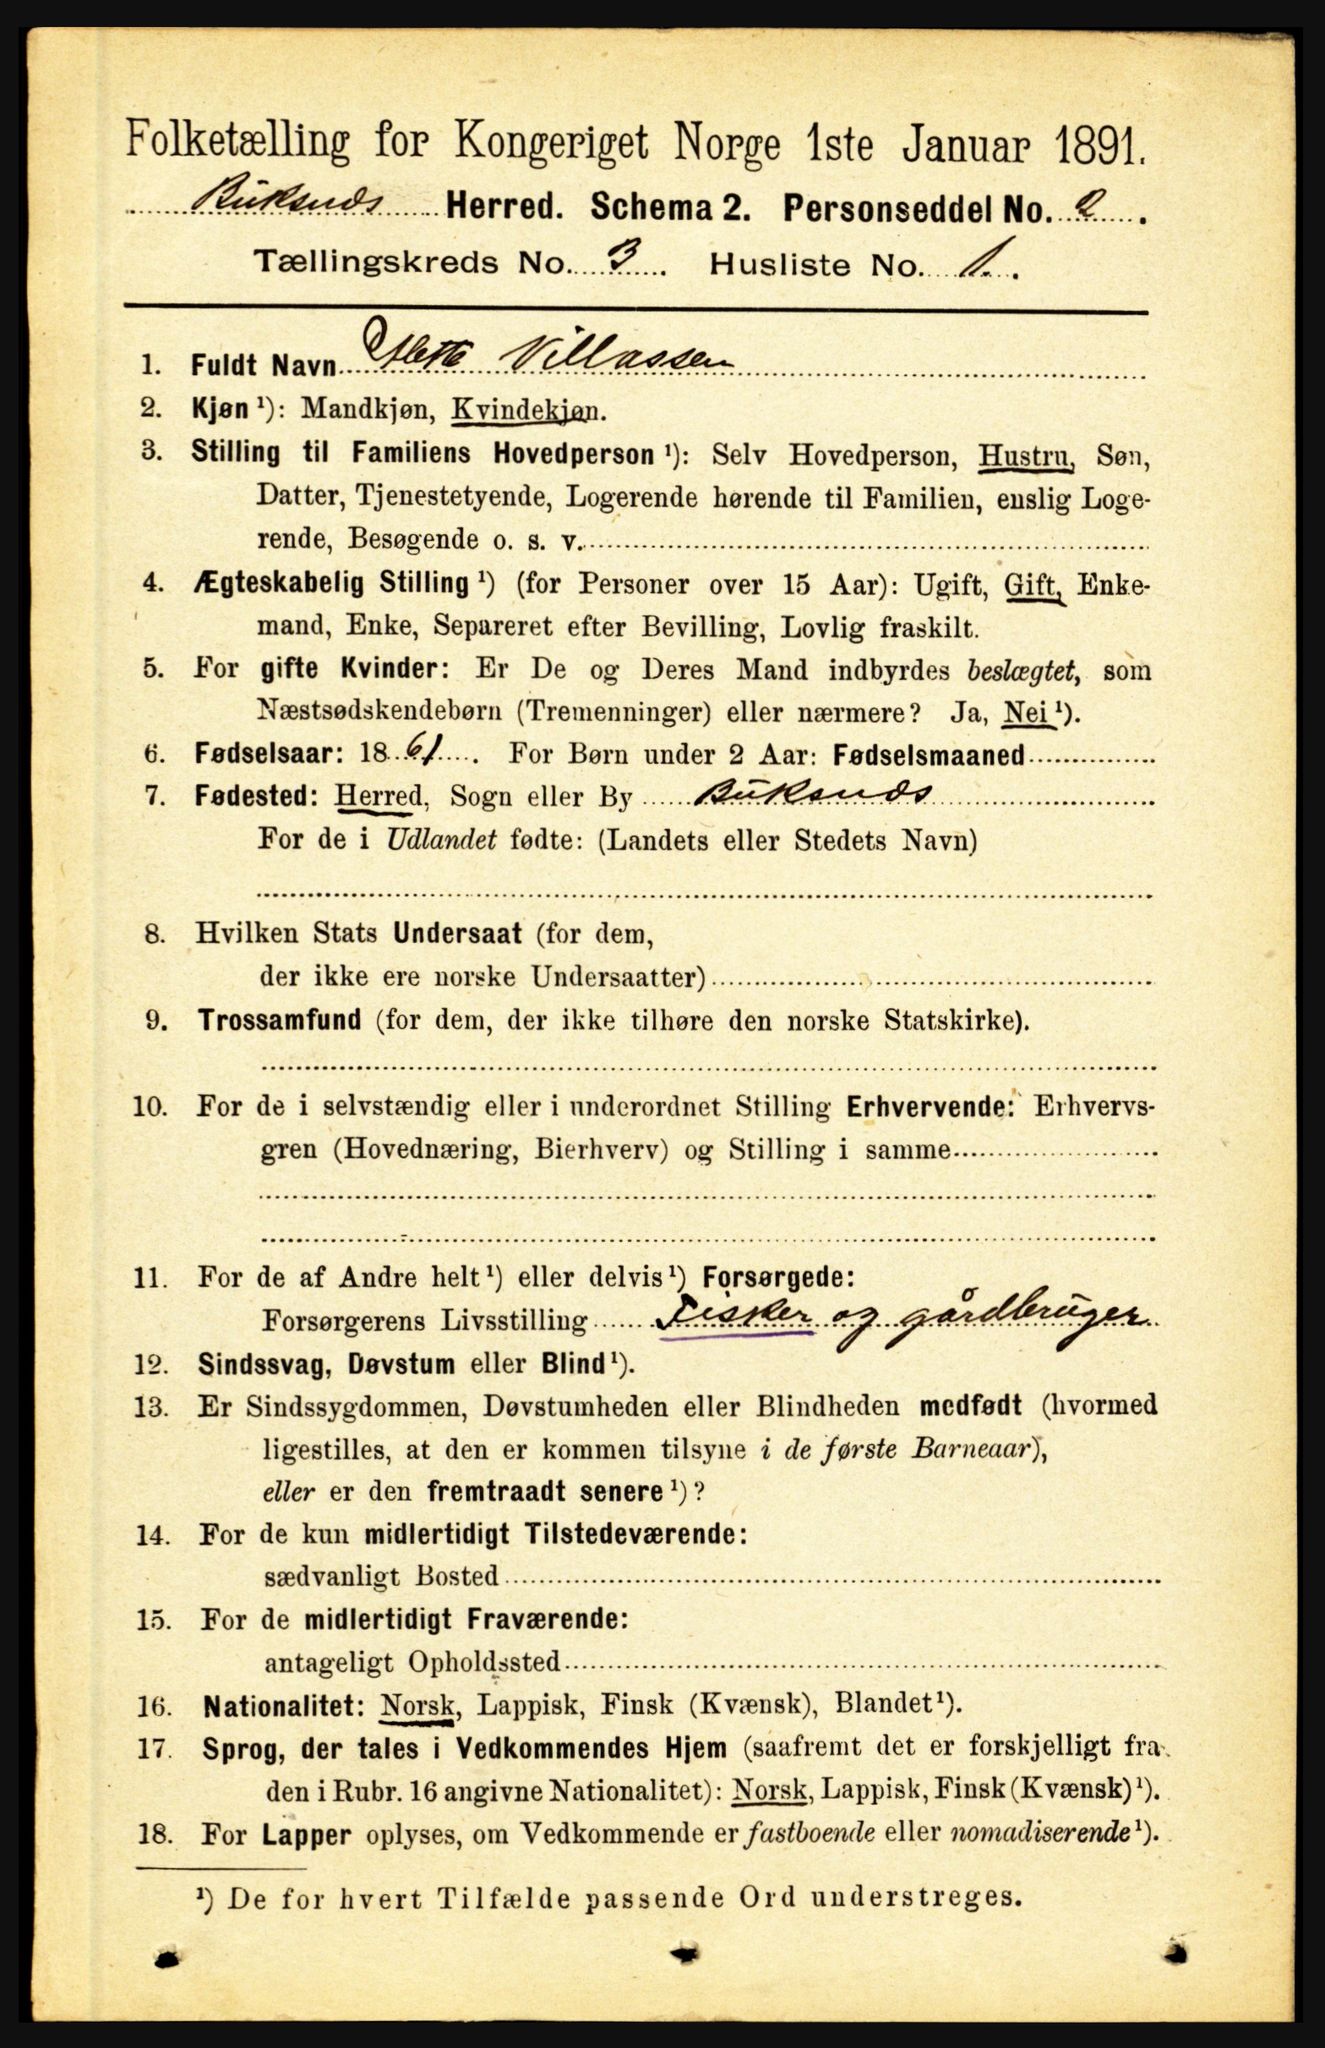 Folketælling for Kongeriget Norge 1ste Januar 1891.
Buksnes Herred. Schema 2. Personseddel No. 2.
Tællingskreds No. 3. Husliste No. 1.
1. Fuldt Navn Mette Villassen
2. Kjøn ¹): Mandkjøn, Kvindekjøn.
3. Stilling til Familiens Hovedperson ¹): Selv Hovedperson, Hustru, Søn,
Datter, Tjenestetyende, Logerende hørende til Familien, enslig Loge-
rende, Besøgende o. s. v.
4. Ægteskabelig Stilling ¹) (for Personer over 15 Aar): Ugift, Gift, Enke-
mand, Enke, Separeret efter Bevilling, Lovlig fraskilt.
5. For gifte Kvinder: Er De og Deres Mand indbyrdes beslægtet, som
Næstsødskendebørn (Tremenninger) eller nærmere? Ja, Nei ¹).
6. Fødselsaar: 1861. For Børn under 2 Aar: Fødselsmaaned
7. Fødested: Herred, Sogn eller By Buksnes
For de i Udlandet fødte: (Landets eller Stedets Navn)
8. Hvilken Stats Undersaat (for dem,
der ikke ere norske Undersaatter)
9. Trossamfund (for dem, der ikke tilhøre den norske Statskirke).
10. For de i selvstændig eller i underordnet Stilling Erhvervende: Erhvervs-
gren (Hovednæring, Bierhverv) og Stilling i samme
11. For de af Andre helt ¹) eller delvis ¹) Forsørgede:
Forsørgerens Livsstilling Fisker og gårdbruger
12. Sindssvag, Døvstum eller Blind ¹).
13. Er Sindssygdommen, Døvstumheden eller Blindheden medfødt (hvormed
ligestilles, at den er kommen tilsyne i de første Barneaar),
eller er den fremtraadt senere ¹)?
14. For de kun midlertidigt Tilstedeværende:
sædvanligt Bosted
15. For de midlertidigt Fraværende:
antageligt Opholdssted
16. Nationalitet: Norsk, Lappisk, Finsk (Kvænsk), Blandet ¹).
17. Sprog, der tales i Vedkommendes Hjem (saafremt det er forskjelligt fra
den i Rubr. 16 angivne Nationalitet): Norsk, Lappisk, Finsk (Kvænsk) ¹).
18. For Lapper oplyses, om Vedkommende er fastboende eller nomadiserende ¹).
¹) De for hvert Tilfælde passende Ord understreges.